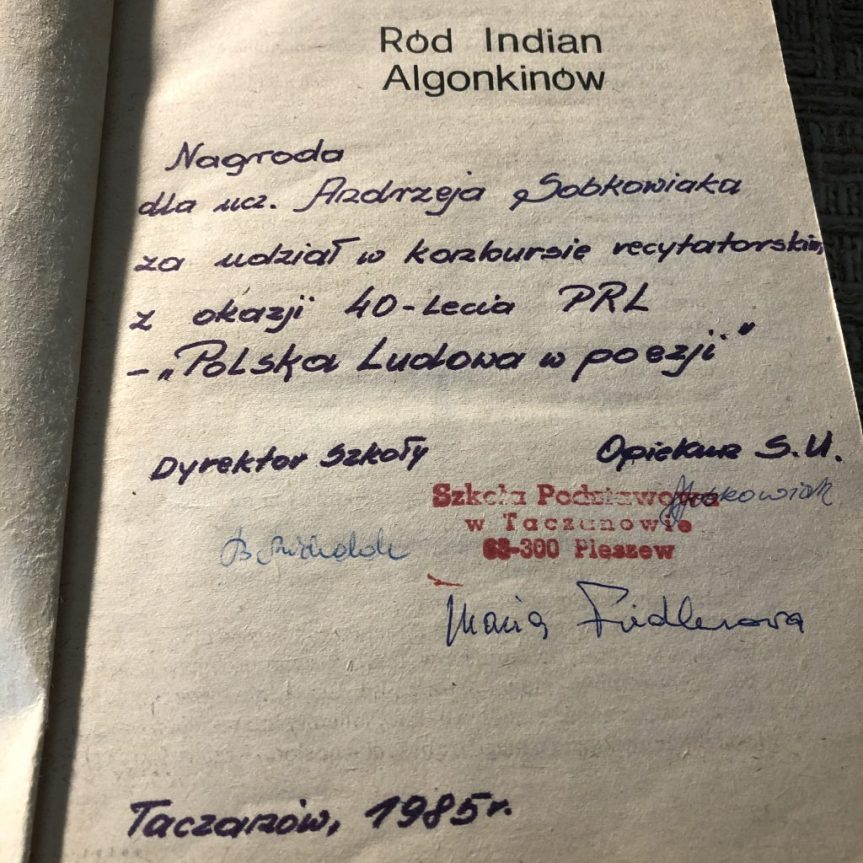 Ród Indian
Algonkinów
Nagroda
dla ucz. Andrzeja Sobkowiaka
za udział w konkursie recytatorskim,
z okazji 40-lecia PRL
- „Polska Ludowa w poezji"
Dyrektor Szkoły
Opiekun S.U.
Szkoła Podstawowa
w Taczanowie
63-300 Pleszew
Maria Fiedlerowa
Taczanów, 1985r.